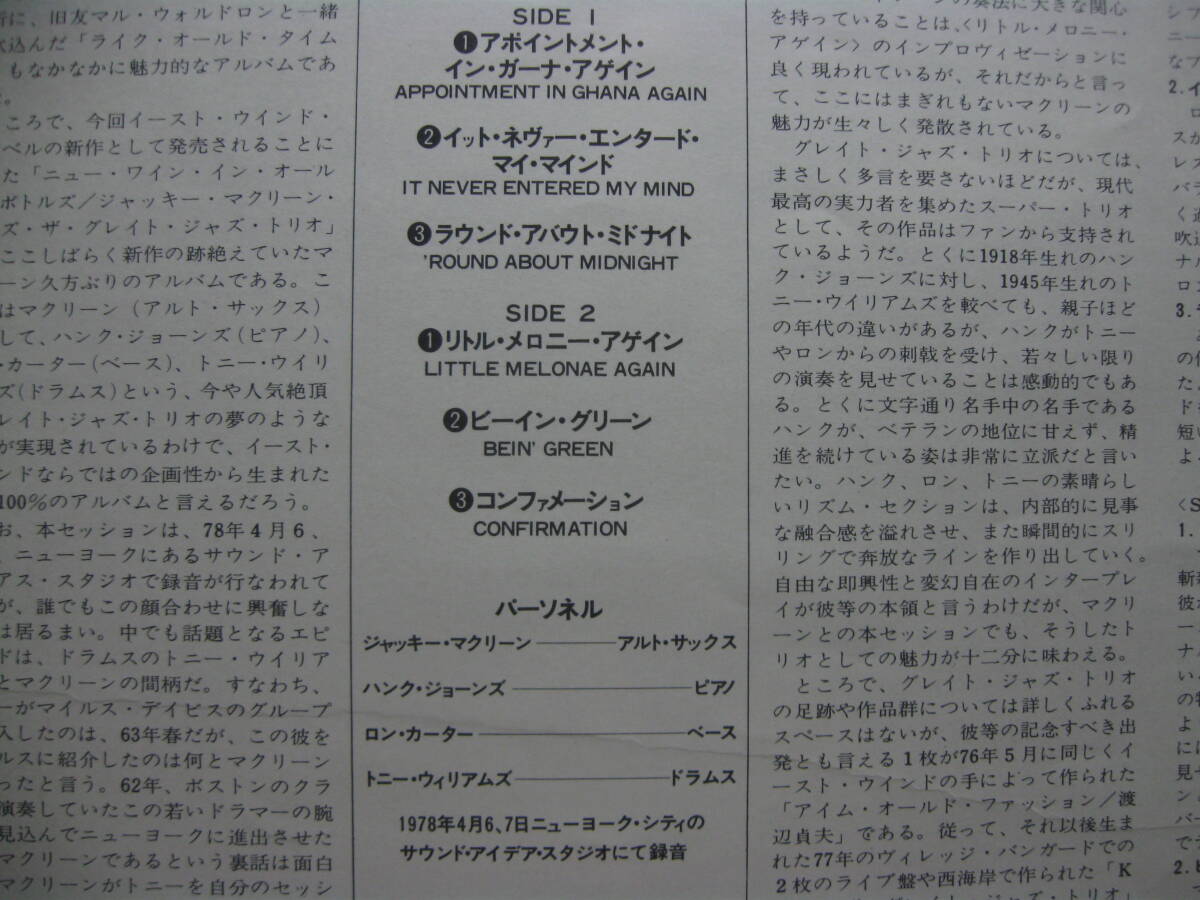 折に、旧友マル・ウォルドロンと一緒
吹込んだ「ライク・オールド・タイム
もなかなかに魅力的なアルバムであ
る。
ころで、今回イースト・ウインド・
ベルの新作として発売されることに
た「ニュー・ワイン・イン・オール
ボトルズ/ジャッキー・マクリーン・
ズ・ザ・グレイト・ジャズ・トリオ」
ここしばらく新作の跡絶えていたマ
ーン久方ぶりのアルバムである。こ
はマクリーン(アルト・サックス)
して、ハンク・ジョーンズ(ピアノ)、
・カーター(ベース)、トニー・ウイリ
ズ(ドラムス)という、今や人気絶頂
レイト・ジャズ・トリオの夢のような
が実現されているわけで、イースト・
ンドならではの企画性から生まれた
100%のアルバムと言えるだろう。
お、本セッションは、78年4月6、
、ニューヨークにあるサウンド・ア
アス・スタジオで録音が行なわれて
が、誰でもこの顔合わせに興奮しな
は居るまい。中でも話題となるエピ
ドは、ドラムスのトニー・ウイリア
とマクリーンの間柄だ。すなわち、
ーがマイルス・デイビスのグループ
入したのは、63年春だが、この彼を
ルスに紹介したのは何とマクリーン
ったと言う。62年、ボストンのクラ
演奏していたこの若いドラマーの腕
見込んでニューヨークに進出させた
マクリーンであるという裏話は面白
マクリーンがトニーを自分のセッシ
SIDE 1
❶アポイントメント・
イン・ガーナ・アゲイン
APPOINTMENT IN GHANA AGAIN
❷イット・ネヴァー・エンタード・
マイ・マインド
IT NEVER ENTERED MY MIND
❸ラウンド・アバウト・ミドナイト
'ROUND ABOUT MIDNIGHT
SIDE 2
❶リトル・メロニー・アゲイン
LITTLE MELONAE AGAIN
❷ビーイン・グリーン
BEIN' GREEN
❸コンファメーション
CONFIRMATION
パーソネル
ジャッキー・マクリーン――アルト・サックス
ハンク・ジョーンズ――ピアノ
ロン・カーター――ベース
トニー・ウィリアムズ――ドラムス
1978年4月6、7日ニューヨーク・シティの
サウンド・アイデア・スタジオにて録音
ーンの奏法に大きな関心
を持っていることは、〈リトル・メロニー・
アゲイン〉のインプロヴィゼーションに
良く現われているが、それだからと言っ
て、ここにはまぎれもないマクリーンの
魅力が生々しく発散されている。
グレイト・ジャズ・トリオについては、
まさしく多言を要さないほどだが、現代
最高の実力者を集めたスーパー・トリオ
として、その作品はファンから支持され
ているようだ。とくに1918年生れのハン
ク・ジョーンズに対し、1945年生れのト
ニー・ウイリアムズを較べても、親子ほど
の年代の違いがあるが、ハンクがトニー
やロンからの刺戟を受け、若々しい限り
の演奏を見せていることは感動的でもあ
る。とくに文字通り名手中の名手である
ハンクが、ベテランの地位に甘えず、精
進を続けている姿は非常に立派だと言い
たい。ハンク、ロン、トニーの素晴らし
いリズム・セクションは、内部的に見事
な融合感を溢れさせ、また瞬間的にスリ
リングで奔放なラインを作り出していく。
自由な即興性と変幻自在のインタープレ
イが彼等の本領と言うわけだが、マクリ
ーンとの本セッションでも、そうしたト
リオとしての魅力が十二分に味わえる。
ところで、グレイト・ジャズ・トリオ
の足跡や作品群については詳しくふれる
スペースはないが、彼等の記念すべき出
発とも言える1枚が76年5月に同じくイ
ースト・ウインドの手によって作られた
「アイム・オールド・ファッション/渡
辺貞夫」である。従って、それ以後生ま
れた77年のヴィレッジ・バンガードでの
2枚のライブ盤や西海岸で作られた「K
シア
ニー
なプ
2.イ
ロ
スが
レス
バラ
くス
吹込
ナル
ロン
3.
の作
た.
ドを
短い
よ.
〈S
1.
斬新
彼が
ー
ナル
いる
の特
よ
には
見せ
ン。
バー
でブ
2.ビ